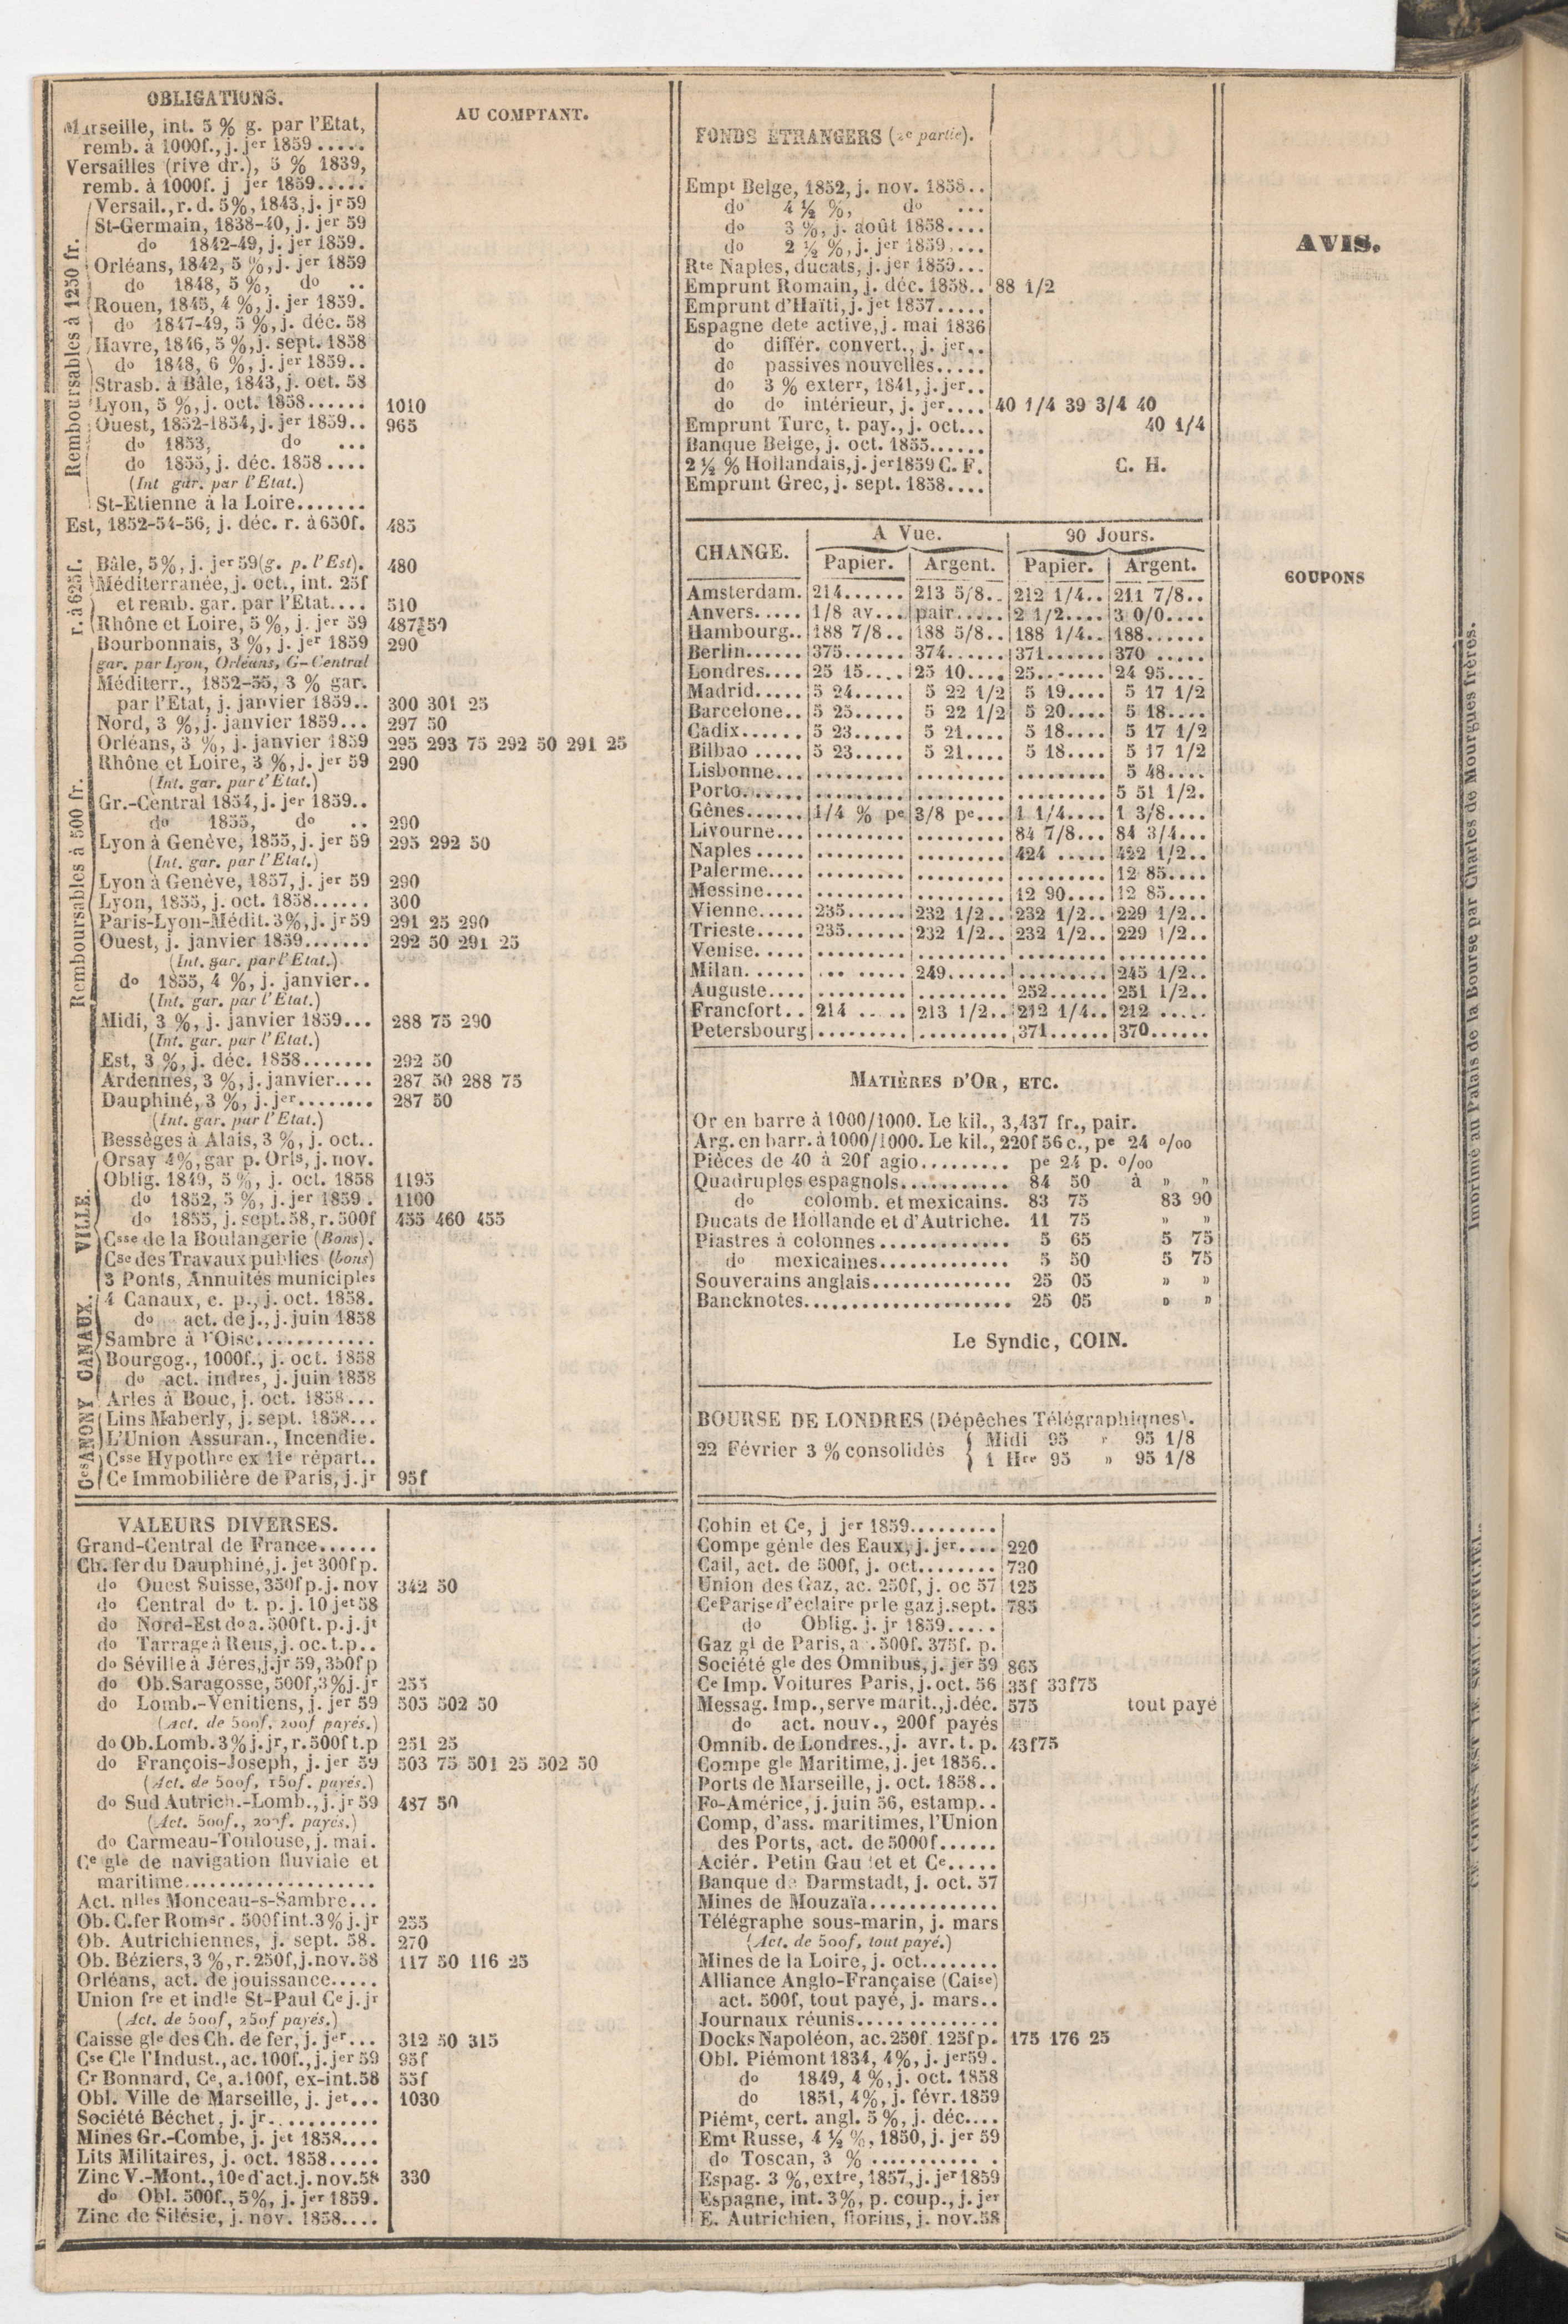 OBLIGATIONS.
AU COMPTANT.
Marseille, int. 5 % g. par l'Etat,
remb. à 1000f., j. jer 1859 .....
Versailles (rive dr.), 5 % 1839,
remb. à 1000f. j jer 1859.....
Remboursables à 1250 fr.
Versail., r. d. 5%, 1843, j. jr 59
St-Germain, 1838-40, j. jer 59
do 1842-49, j. jer 1859.
Orléans, 1842, 5 %, j. jer 1859
do 1848, 5 %, do ..
Rouen, 1845, 4 %, j. jer 1859.
do 1847-49, 5 %, j. déc. 58
Havre, 1846, 5 %, j. sept. 1858
do 1848, 6 %, j. jer 1859..
Strasb. à Bâle, 1843, j. oct. 58
Lyon, 5 %, j. oct. 1858...... 1010
Ouest, 1852-1854, j. jer 1859.. 965
do 1853, do ...
do 1855, j. déc. 1858....
(Int gar. par l'Etat.)
St-Etienne à la Loire.......
Est, 1852-54-56, j. déc. r. à 650f. 485
r. à 625f.
Bâle, 5%, j. jer 59 (g. p. l'Est). 480
Méditerranée, j. oct., int. 25f
et remb. gar. par l'Etat.... 510
Rhône et Loire, 5 %, j. jer 59 487 50
Remboursables à 500 fr.
Bourbonnais, 3 %, j. jer 1859 290
gar. par Lyon, Orléans, G-Central
Méditerr., 1852-55, 3 % gar.
par l'Etat, j. janvier 1859.. 300 301 25
Nord, 3 %, j. janvier 1859... 297 50
Orléans, 3 %, j. janvier 1859 295 293 75 292 50 291 25
Rhône et Loire, 3 %, j. jer 59 290
(Int. gar. par l'Etat.)
Gr.-Central 1854, j. jer 1859..
do 1855, do .. 290
Lyon à Genève, 1855, j. jer 59 295 292 50
(Int. gar. par l'Etat.)
Lyon à Genève, 1857, j. jer 59 290
Lyon, 1855, j. oct. 1858...... 300
Paris-Lyon-Médit. 3%, j. jr 59 291 25 290
Ouest, j. janvier 1859....... 292 50 291 25
(Int. gar. par l'Etat.)
do 1855, 4 %, j. janvier..
(Int. gar. par l'Etat.)
Midi, 3 %, j. janvier 1859... 288 75 290
(Int. gar. par l'Etat.)
Est, 3 %, j. déc. 1858....... 292 50
Ardennes, 3 %, j. janvier.... 287 50 288 75
Dauphiné, 3 %, j. jer........ 287 50
(Int. gar. par l'Etat.)
Bessèges à Alais, 3 %, j. oct..
Orsay 4%, gar p. Orls, j. nov.
VILLE.
Oblig. 1849, 5 %, j. oct. 1858 1195
do 1852, 5 %, j. jer 1859. 1100
do 1855, j. sept. 58, r. 500f 455 460 455
Csse de la Boulangerie (Bons).
Cse des Travaux publics (bons)
3 Ponts, Annuités municiples
CANAUX.
4 Canaux, c. p., j. oct. 1858.
do act. de j., j. juin 1858
Sambre à l'Oise............
Bourgog., 1000f., j. oct. 1858
do act. indres, j. juin 1858
Arles à Bouc, j. oct. 1858...
Ces ANONY
Lins Maberly, j. sept. 1858...
L'Union Assuran., Incendie.
Csse Hypothre ex 11e répart..
Ce Immobilière de Paris, j. jr 95f
VALEURS DIVERSES.
Grand-Central de France......
Ch. fer du Dauphiné, j. jet 300f p.
do Ouest Suisse, 350f p. j. nov 342 50
do Central do t. p. j. 10 jet 58
do Nord-Est do a. 500f t. p. j. jt
do Tarrage à Reus, j. oc. t. p..
do Séville à Jéres, j. jr 59, 350f p
do Ob. Saragosse, 500f, 3% j. jr 255
do Lomb.-Venitiens, j. jer 59 505 502 50
(Act. de 500f, 200f payés.)
do Ob. Lomb. 3% j. jr, r. 500f t. p 251 25
do François-Joseph, j. jer 59 503 75 501 25 502 50
(Act. de 500f, 150f. payés.)
do Sud Autrich.-Lomb., j. jr 59 487 50
(Act. 500f., 200f. payés.)
do Carmeau-Toulouse, j. mai.
Ce gle de navigation fluviale et
maritime...................
Act. nlles Monceau-s-Sambre...
Ob. C. fer Romsr. 500f int. 3% j. jr 255
Ob. Autrichiennes, j. sept. 58. 270
Ob. Béziers, 3 %, r. 250f, j. nov. 58 117 50 116 25
Orléans, act. de jouissance.....
Union fre et indle St-Paul Ce j. jr
(Act. de 500f, 250f payés.)
Caisse gle des Ch. de fer, j. jer... 312 50 315
Cse Cle l'Indust., ac. 100f., j. jer 59 95f
Cr Bonnard, Ce, a. 100f, ex-int. 58 55f
Obl. Ville de Marseille, j. jet... 1030
Société Béchet, j. jr...........
Mines Gr.-Combe, j. jet 1858....
Lits Militaires, j. oct. 1858.....
Zinc V.-Mont., 10e d'act. j. nov. 58 330
do Obl. 500f., 5%, j. jer 1859.
Zinc de Silésie, j. nov. 1858....
FONDS ÉTRANGERS (2e partie).
Empt Belge, 1852, j. nov. 1858..
do 4 ½ %, do ...
do 3 %, j. août 1858....
do 2 ½ %, j. jer 1859....
Rte Naples, ducats, j. jer 1859...
Emprunt Romain, j. déc. 1858.. 88 1/2
Emprunt d'Haïti, j. jet 1857.....
Espagne dete active, j. mai 1836
do différ. convert., j. jer..
do passives nouvelles.....
do 3 % exterr, 1841, j. jer..
do do intérieur, j. jer.... 40 1/4 39 3/4 40
Emprunt Turc, t. pay., j. oct... 40 1/4
Banque Belge, j. oct. 1855......
2 ½ % Hollandais, j. jer 1859 C. F. C. H.
Emprunt Grec, j. sept. 1858....
CHANGE. A Vue. 90 Jours.
Papier. Argent. Papier. Argent.
Amsterdam. 214...... 213 5/8.. 212 1/4.. 211 7/8..
Anvers..... 1/8 av... pair..... 2 1/2.... 3 0/0....
Hambourg.. 188 7/8.. 188 5/8.. 188 1/4.. 188......
Berlin...... 375...... 374...... 371...... 370 .....
Londres.... 25 15.... 25 10.... 25........ 24 95....
Madrid..... 5 24..... 5 22 1/2 5 19.... 5 17 1/2
Barcelone.. 5 25..... 5 22 1/2 5 20.... 5 18....
Cadix...... 5 23..... 5 21.... 5 18.... 5 17 1/2
Bilbao ..... 5 23..... 5 21.... 5 18.... 5 17 1/2
Lisbonne... ......... ......... ......... 5 48....
Porto...... ......... ......... ......... 5 51 1/2.
Gênes...... 1/4 % pe 3/8 pe... 1 1/4.... 1 3/8....
Livourne... ......... ......... 84 7/8... 84 3/4...
Naples ..... ......... ......... 424 ..... 422 1/2..
Palerme.... ......... ......... ......... 12 85....
Messine.... ......... ......... 12 90.... 12 85....
Vienne..... 235...... 232 1/2.. 232 1/2.. 229 1/2..
Trieste..... 235...... 232 1/2.. 232 1/2.. 229 1/2..
Venise..... ......... ......... ......... .........
Milan...... ......... 249...... ......... 245 1/2..
Auguste.... ......... ......... 252...... 251 1/2..
Francfort.. 214 ..... 213 1/2.. 212 1/4.. 212 .....
Petersbourg ......... ......... 371...... 370......
MATIÈRES D'OR, ETC.
Or en barre à 1000/1000. Le kil., 3,437 fr., pair.
Arg. en barr. à 1000/1000. Le kil., 220f 56 c., pe 24 o/oo
Pièces de 40 à 20f agio......... pe 24 p. o/oo
Quadruples espagnols........... 84 50 à » »
do colomb. et mexicains. 83 75 83 90
Ducats de Hollande et d'Autriche. 11 75 » »
Piastres à colonnes............. 5 65 5 75
do mexicaines............. 5 50 5 75
Souverains anglais.............. 25 05 » »
Bancknotes..................... 25 05 » »
Le Syndic, COIN.
BOURSE DE LONDRES (Dépêches Télégraphiques).
22 Février 3 % consolidés { Midi 95 » 95 1/8
1 Hre 95 » 95 1/8
Cohin et Ce, j jer 1859.........
Compe génle des Eaux, j. jer.... 220
Cail, act. de 500f, j. oct........ 730
Union des Gaz, ac. 250f, j. oc 57 125
Ce Parise d'éclaire pr le gaz j. sept. 785
do Oblig. j. jr 1859.....
Gaz gl de Paris, a. 500f. 375f. p.
Société gle des Omnibus, j. jer 59 865
Ce Imp. Voitures Paris, j. oct. 56 35f 33f75
Messag. Imp., serve marit., j. déc. 575 tout payé
do act. nouv., 200f payés
Omnib. de Londres., j. avr. t. p. 43f75
Compe gle Maritime, j. jet 1856..
Ports de Marseille, j. oct. 1858..
Fo-Américe, j. juin 56, estamp..
Comp, d'ass. maritimes, l'Union
des Ports, act. de 5000f......
Aciér. Petin Gaudet et Ce.....
Banque de Darmstadt, j. oct. 57
Mines de Mouzaïa.............
Télégraphe sous-marin, j. mars
(Act. de 500f, tout payé.)
Mines de la Loire, j. oct........
Alliance Anglo-Française (Caise)
act. 500f, tout payé, j. mars..
Journaux réunis..............
Docks Napoléon, ac. 250f 125f p. 175 176 25
Obl. Piémont 1834, 4%, j. jer 59.
do 1849, 4 %, j. oct. 1858
do 1851, 4%, j. févr. 1859
Piémt, cert. angl. 5 %, j. déc....
Emt Russe, 4 ½ %, 1850, j. jer 59
do Toscan, 3 % ............
Espag. 3 %, extre, 1857, j. jer 1859
Espagne, int. 3%, p. coup., j. jer
E. Autrichien, florins, j. nov. 58
AVIS.
COUPONS
Imprimé au Palais de la Bourse par Charles de Mourgues frères.
CE COURS EST LE SEUL OFFICIEL.